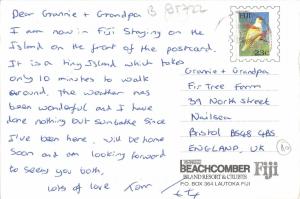 Dear Grannie + Grandpa
I am now in Fiji Staying on the
Island on the front of the postcard.
It is a tiny Island which takes
only 10 minutes to walk
around. The weather has
been wonderful and I have
done nothing but sunbathe since
I've been here. Will be home
soon and am looking forward
to seeing you both,
Lots of love Tom
B 85722
FIJI
23c
Grannie + Grandpa
Fir Tree Farm
39 North Street
Nailsea
Bristol BS48 4BS
ENGLAND, UK
BEACHCOMBER Fiji
ISLAND RESORT & CRUISES
P.O. BOX 364 LAUTOKA FIJI